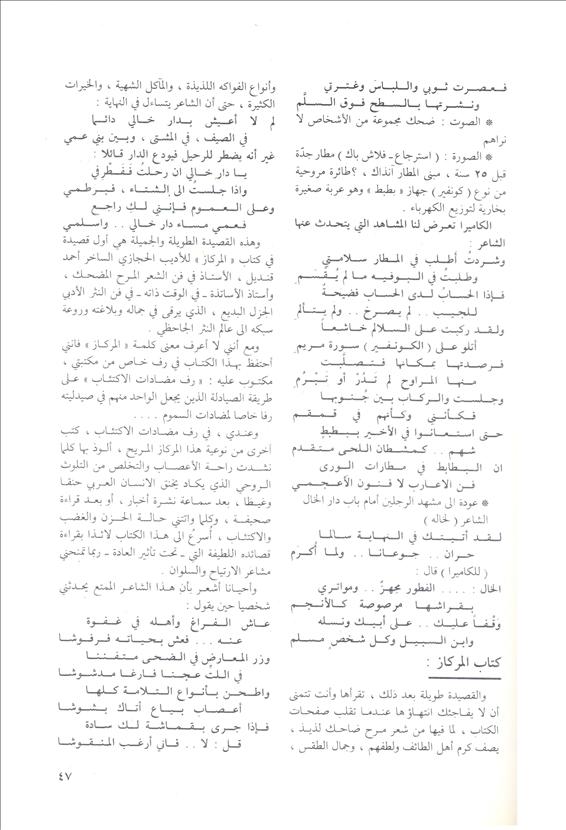 فـعـصـرت ثـوبـي والـلـبـاسَ وغـتـرتي
ونـشـرتهـا بـالـسـطح فوق السـلّم
* الصوت : ضحك مجموعة من الأشخاص لا
نراهم
* الصورة : ( استرجاع ـ فلاش باك ) مطار جدّة
قبل ٢٥ سنة ، مبنى المطار آنذاك ، ؟طائرة مروحية
من نوع ( كونفير ) جهاز « بطبط » وهو عربة صغيرة
بخارية لتوزيع الكهرباء .
الكاميرا تعرض لنا المشاهد التي يتحدث عنها
الشاعر :
وشردتُ أطلب في المطار سلامتي
وطلبتُ في البوفيه ما لم يُقسم
فإذا الحسابُ لدى الحساب فضيحةٌ
للجيب .. لم يصرخ .. ولم يتألم
ولقد ركبت على السلالم خاشعاً
أتلو على ( الكونفير ) سورة مريم
فرصدتها بمكانها فتصلّبت
منها المراوح لم تدُرْ أو تبْرُم
وجلست والركاب بين جُنوبها
فكأنني وكأنهم في قمقم
حتى استعانوا في الأخير ببطبطٍ
شهم .. كمشطان اللحى متقدم
ان البطابط في مطارات الورى
فن الاعارب لا فنون الأعجمي
* عودة الى مشهد الرجلين أمام باب دار الخال
الشاعر ( لخاله )
لقد أتيتك في النهاية سالما
حران .. جوعانا .. ولما أكرم
( للكاميرا ) قال :
الخال : .... الفطور مجهزٌ .. ومواتري
بقراشها مرصوصة كالأنجم
وَقْفاً عليك .. على أبيك ونسله
وابن السبيل وكل شخصٍ مسلم
كتاب المركاز :
والقصيدة طويلة بعد ذلك ، تقرأها وأنت تتمنى
أن لا يفاجئك انتهاؤها عندما تقلب صفحات
الكتاب ، لما فيها من شعر مرح ضاحك لذيذ ،
يصف كرم أهل الطائف ولطفهم ، وجمال الطقس ،
وأنواع الفواكه اللذيذة ، والمآكل الشهية ، والخيرات
الكثيرة ، حتى أن الشاعر يتساءل في النهاية :
لم لا أعيش بدار خالي دائما
في الصيف ، في المشتى ، وبين بني عمي
غير أنه يضطر للرحيل فيودع الدار قائلا :
يا دار خالي ان رحلتُ فَفَطِّرفي
واذا جلستُ الى الشتاء ، فبرطمي
وعلى العموم فإنني لكِ راجع
فعمي مساء دار خالي .. واسلمي
وهذه القصيدة الطويلة والجميلة هي أول قصيدة
في كتاب « المركاز » للأديب الحجازي الساخر أحمد
قنديل ، الأستاذ في فن الشعر المرح المضحك ،
وأستاذ الأساتذة ـ في الوقت ذاته ـ في فن النثر الأدبي
الجزل البديع ، الذي يرقى في جماله وبلاغته وروعة
سبكه الى عالم النثر الجاحظي .
ومع أنني لا أعرف معنى كلمة « المركاز » فانني
أحتفظ بهذا الكتاب في رف خاص من مكتبتي ،
مكتوب عليه : « رف مضادات الاكتئاب » على
طريقة الصيادلة الذين يجعل الواحد منهم في صيدليته
رفا خاصا لمضادات السموم ....
وعندي ، في رف مضادات الاكتئاب ، كتب
أخرى من نوعية هذا المركاز المريح ، ألوذ بها كلما
نشدت راحة الأعصاب والتخلص من التلوث
الروحي الذي يكاد يخنق الانسان العربي حنقا
وغيظا ، بعد سماعة نشرة أخبار ، أو بعد قراءة
صحيفة ، وكلما واتتني حالة الحزن والغضب
والاكتئاب ، أُسرعُ الى هذا الكتاب لائذا بقراءة
قصائده اللطيفة التي ـ تحت تأثير العادة ـ ربما تمنحني
مشاعر الارتياح والسلوان .
وأحيانا أشعر بأن هذا الشاعر الممتع يحدثني
شخصيا حين يقول :
عاش الفراغ وأهله في غفوة
عنه ... فعش بحياته فرفوشا
وزر المعارضَ في الضحى متفننا
في اللت عجنا فارغا مدشوشا
واطحن بأنواع التلامة كلها
أعصاب بياع أتاك بشوشا
فإذا جرى بقماشة لك سادة
قل : لا .. فاني أرغب المنقوشا
٤٧